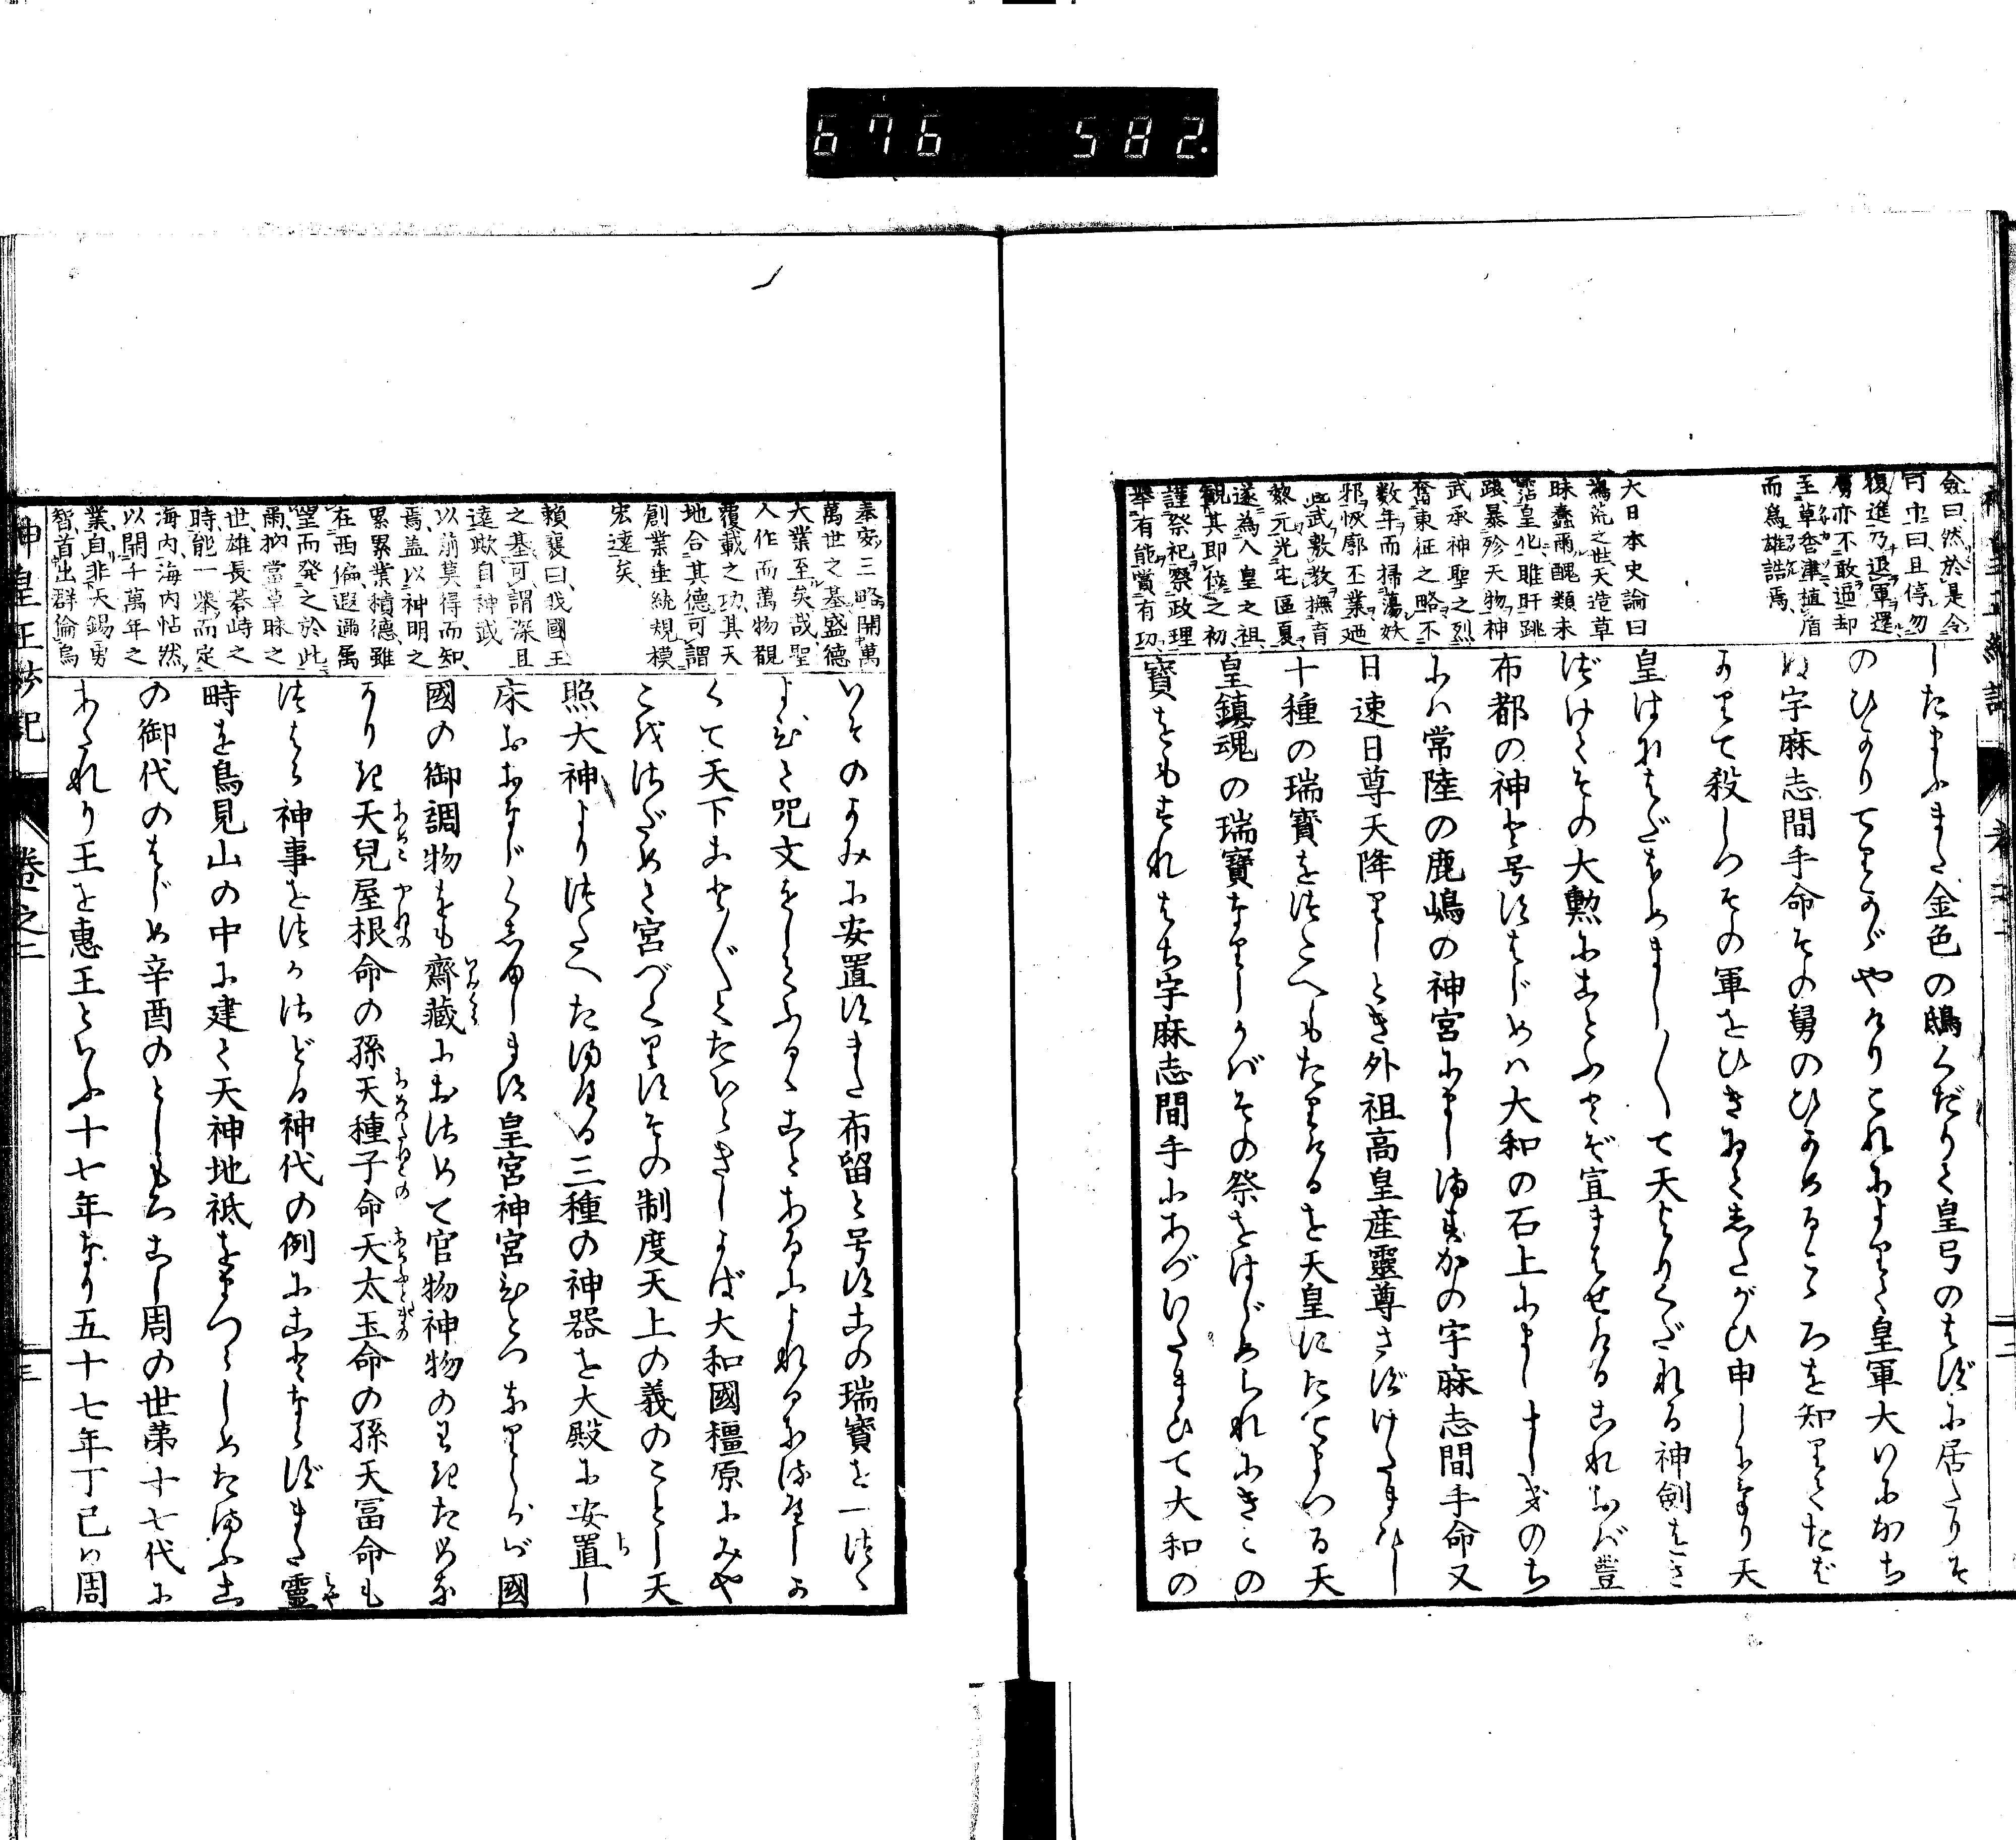 676 582.
僉曰然於是令
司巾曰且停勿
復進乃退軍還
虜亦不敢逼却
至草香津植盾
而爲雄誥焉
大日本史論曰
鴻荒之世天造草
昧蠢爾醜類未
霑皇化睢盱跳
踉暴殄天物神
武承神聖之烈
奮東征之略不
數年而掃蕩妖
邪恢廓丕業廼
此武敷教撫育
黎元光宅區夏
遂為人皇之祖
観其即位之初
謹祭祀祭政理
舉有能賞有功
したまふまた金色の鵄くだりて皇弓のはずに居たりそ
のひかりてりかゞやけりこれによりて皇軍大いにかち
ぬ宇麻志間手命その舅のひがめるこゝろを知りてたば
かりて殺しつその軍をひきゐてしたがひ申しにけり天
皇はなはだほめまし〱て天よりくだれる神劍をさ
づけてその大勲にことふとぞ宣まはせけるこれをば豊
布都の神と号すはじめハ大和の石上にましましきのち
にハ常陸の鹿嶋の神宮にましますかの宇麻志間手命又
日速日尊天降りしとき外祖高皇産靈尊さづけたまひし
十種の瑞寶をつたへもたりけるを天皇にたてまつる天
皇鎮魂の瑞寶なりしかばその祭をはじめられにきこの
寶をもすなはち宇麻志間手にあづけたまひて大和の
秦安三略開萬
萬世之基盛德
大業至矣哉聖
人作而萬物覩
覆載之功其天
地合其德可謂
創業垂統規模
宏遠矣
頼襄曰我國王
之基可謂深且
遠歟自神武
以前莫得而知
焉蓋以神明之
累累業積德雖
在西偏遐邇属
望而発之於此
爾於當草昧之
世雄長棊峙之
時能一舉而定
海内海内帖然
以開千萬年之
業自非天錫勇
智首出群倫烏
いそのかみに安置すまた布留と号すこの瑞寶を一つゝ
よびて咒文をしてふるゝことあるによれるなるべしか
くて天下こと〲くたひらぎしかば大和國橿原にみや
こをさだめて宮づくりすその制度天上の義のごとし天
照大神よりつたへたまへる三種の神器を大殿に安置し
床をおなじくしまします皇宮神宮ひとつなりしかバ國
國の御調物をも齋藏にをさめて官物神物のわきだめな
かりき天兒屋根命の孫天種子命天太玉命の孫天冨命も
はら神事をつかさどる神代の例にことならずまた靈
時を鳥見山の中に建て天神地祇をまつらしめたまふこ
の御代のはじめ辛酉のとしもろこし周の世第十七代に
あたれり王を惠王といふ十七年なり五十七年丁巳ハ周
神皇正統記 卷之二 三